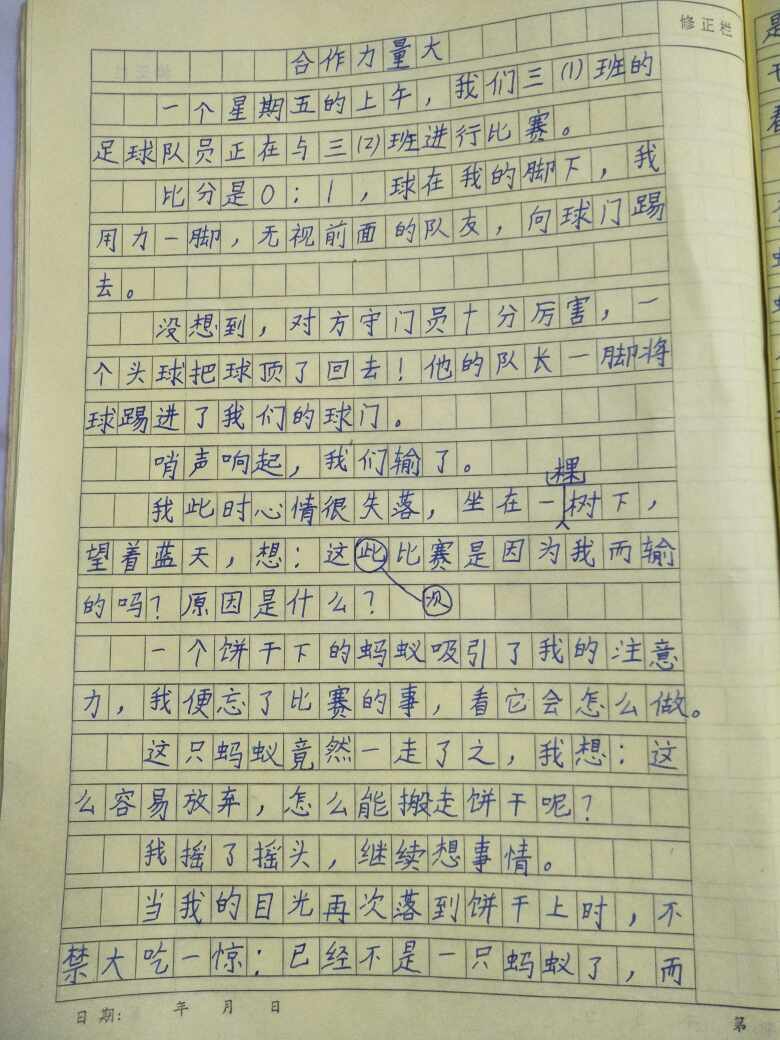 修正栏
合作力量大
一个星期五的上午，我们三(1)班的
足球队员正在与三(2)班进行比赛。
比分是0：1，球在我的脚下，我
用力一脚，无视前面的队友，向球门踢
去。
没想到，对方守门员十分厉害，一
个头球把球顶了回去！他的队长一脚将
球踢进了我们的球门。
哨声响起，我们输了。
棵
我此时心情很失落，坐在一树下，
望着蓝天，想：这此比赛是因为我而输
的吗？原因是什么？
次
一个饼干下的蚂蚁吸引了我的注意
力，我便忘了比赛的事，看它会怎么做。
这只蚂蚁竟然一走了之，我想：这
么容易放弃，怎么能搬走饼干呢？
我摇了摇头，继续想事情。
当我的目光再次落到饼干上时，不
禁大吃一惊：已经不是一只蚂蚁了，而
日期： 年 月 日
第